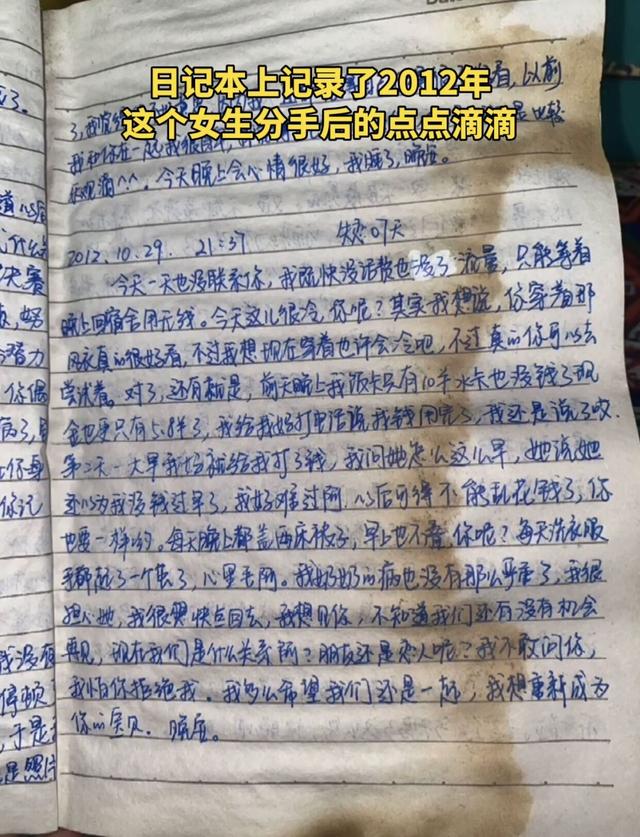 日记本上记录了2012年
这个女生分手后的点点滴滴
看,以前
是比较
乐观滴^^.今天晚上会心情很好,我睡了,晚安。
2012.10.29. 21:37 失恋07天
今天一天也没联系你,我既快没话费也没了流量,只能等着
晚上回宿舍用无线。今天这儿很冷,你呢?其实我想说,你穿着那
风衣真的很好看,不过我想现在穿着也许会冷吧,不过真的你可以去
尝试着。对了,还有就是,前天晚上我饭卡只有10羊水卡也没钱了现
金也更只有5.8羊了,我给我妈打电话说我钱用完了,我还是说了哎.
第二天一大早我妈就给我打了钱,我问她怎么这么早,她说,她
还以为我没钱过早了,我好难过阿.以后可得不能乱花钱了,你
也要一样的。每天晚上都盖两床被子,早上也不叠.你呢?每天洗衣服
手都
了一个
了,心里
阿。我奶奶的病也没有那么严重了,我很
担心她,我很
快点回去,我想见你,不知道我们还有没有机会
再见,现在我们是什么关系阿?朋友还是恋人呢?我不敢问你,
我怕你拒绝我.我多么希望我们还是一起,我想重新成为
你的宝贝.晚安。
了.
决赛
努
潜力
你偶
病了,
你记
我没有
停顿
于是
是照片